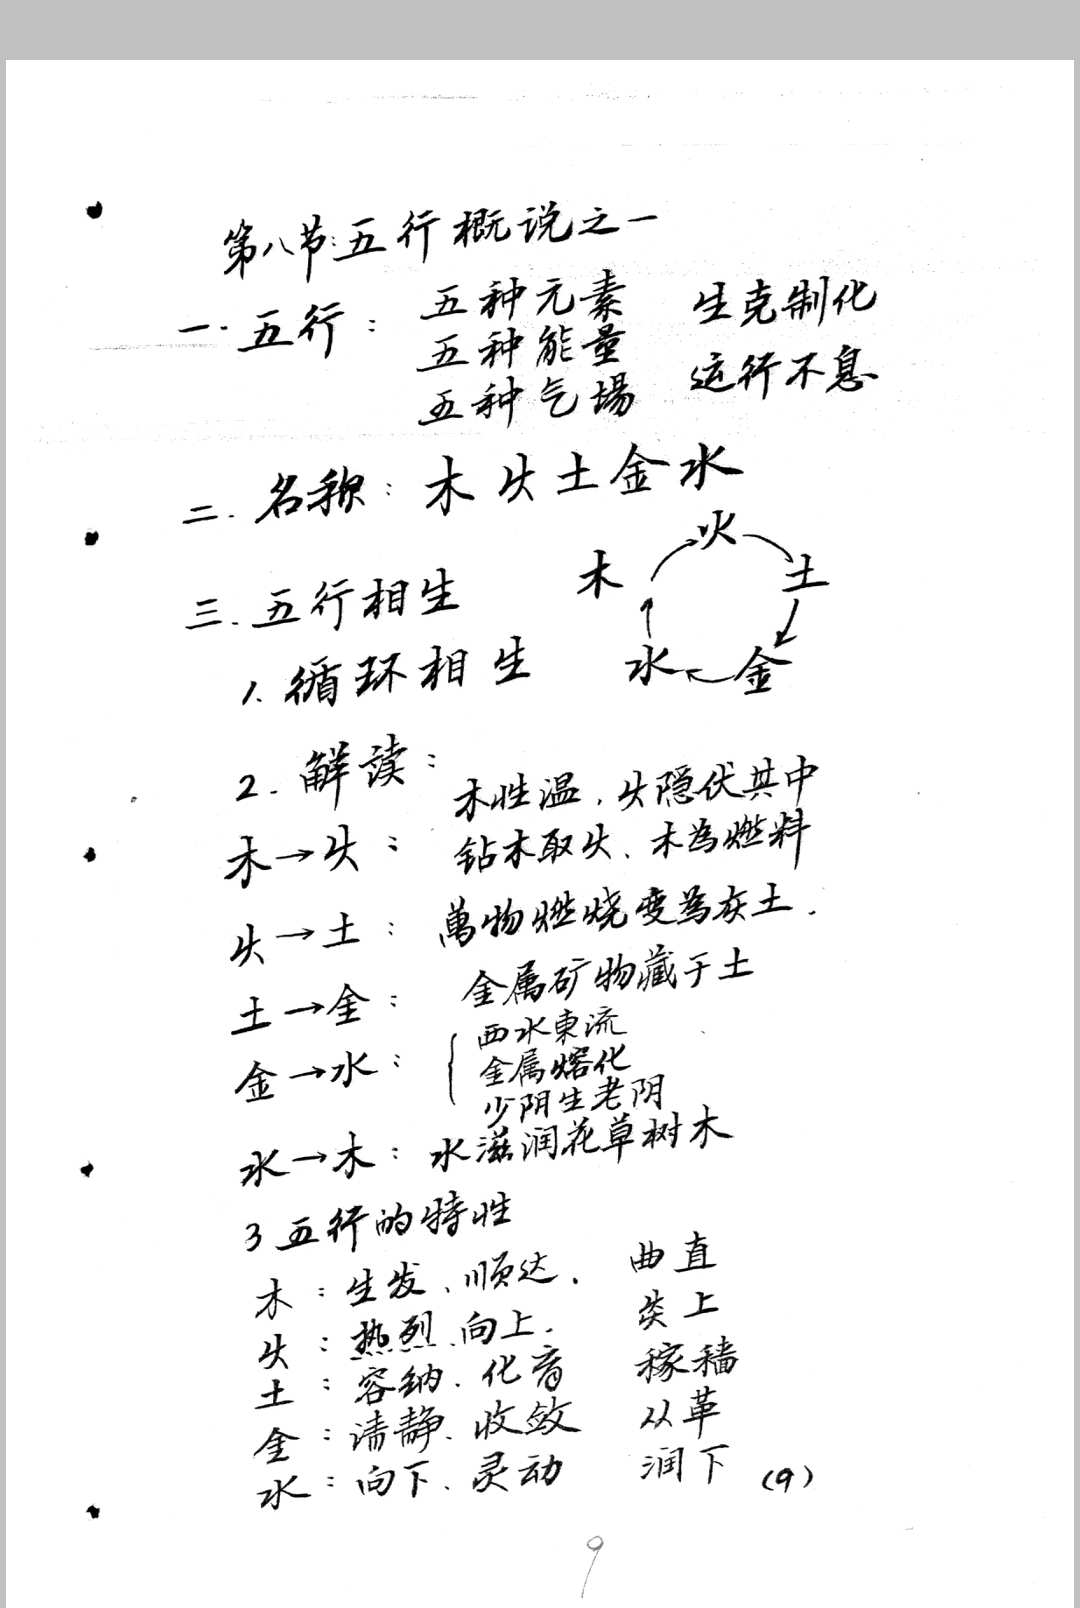 第八节:五行概说之一
一.五行: 五种元素 生克制化
五种能量
五种气場 运行不息
二.名称: 木火土金水
火
木 土
三.五行相生
水 金
1.循环相生
2.解读:
木性温,火隐伏其中
木→火: 钻木取火、木為燃料
火→土: 萬物燃烧变為灰土.
土→金: 金属矿物藏于土
金→水: 西水東流
金属熔化
少阴生老阴
水→木: 水滋润花草树木
3 五行的特性
木:生发、顺达. 曲直
火:热烈.向上. 炎上
土:容纳.化育 稼穡
金:清静.收敛 从革
水:向下.灵动 润下 (9)
9